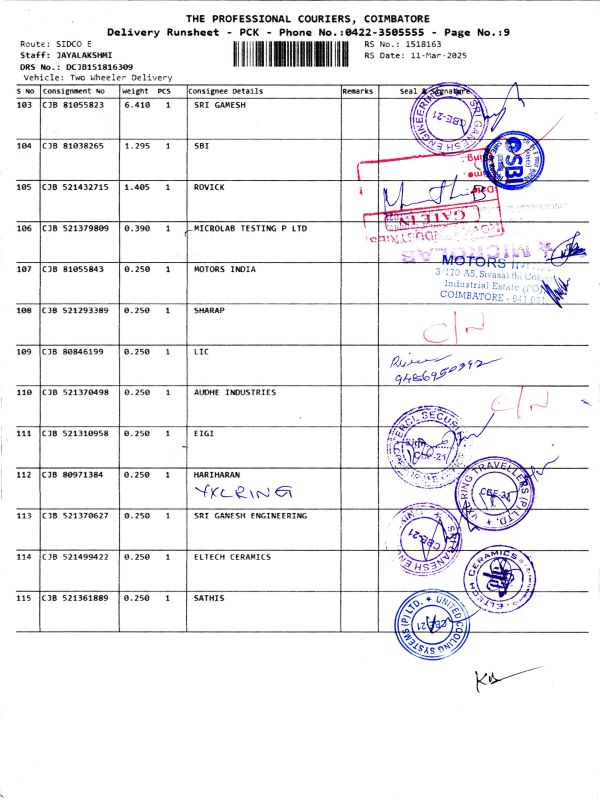 THE PROFESSIONAL COURIERS, COIMBATORE
Delivery Runsheet - PCK - Phone No.:0422-3505555 - Page No.:9
Route: SIDCO E
RS No.: 1518163
Staff: JAYALAKSHMI
RS Date: 11-Mar-2025
DRS No.: DCJB151816309
Vehicle: Two Wheeler Delivery
S No Consignment No Weight PCS Consignee Details Remarks Seal & Signature
103 CJB 81055823 6.410 1 SRI GAMESH
SRI GANESH ENGINEERING CBE-21
104 CJB 81038265 1.295 1 SBI
SBI
105 CJB 521432715 1.405 1 ROVICK
GATE IN
106 CJB 521379809 0.390 1 MICROLAB TESTING P LTD
MICROLAB
107 CJB 81055843 0.250 1 MOTORS INDIA
MOTORS
3/170 A5, Sivasakthi
Industrial Estate
COIMBATORE - 641 021
108 CJB 521293389 0.250 1 SHARAP
C/N
109 CJB 80846199 0.250 1 LIC
9486950392
110 CJB 521370498 0.250 1 AUDHE INDUSTRIES
C/N
111 CJB 521310958 0.250 1 EIGI
112 CJB 80971384 0.250 1 HARIHARAN
YXLRING
YXLRING TRAVELLERS (P) LTD. CBE-21
113 CJB 521370627 0.250 1 SRI GANESH ENGINEERING
SRI GANESH CBE-21
114 CJB 521499422 0.250 1 ELTECH CERAMICS
ELTECH CERAMICS
115 CJB 521361889 0.250 1 SATHIS
UNITED COOLING SYSTEMS (P) LTD. CBE-21